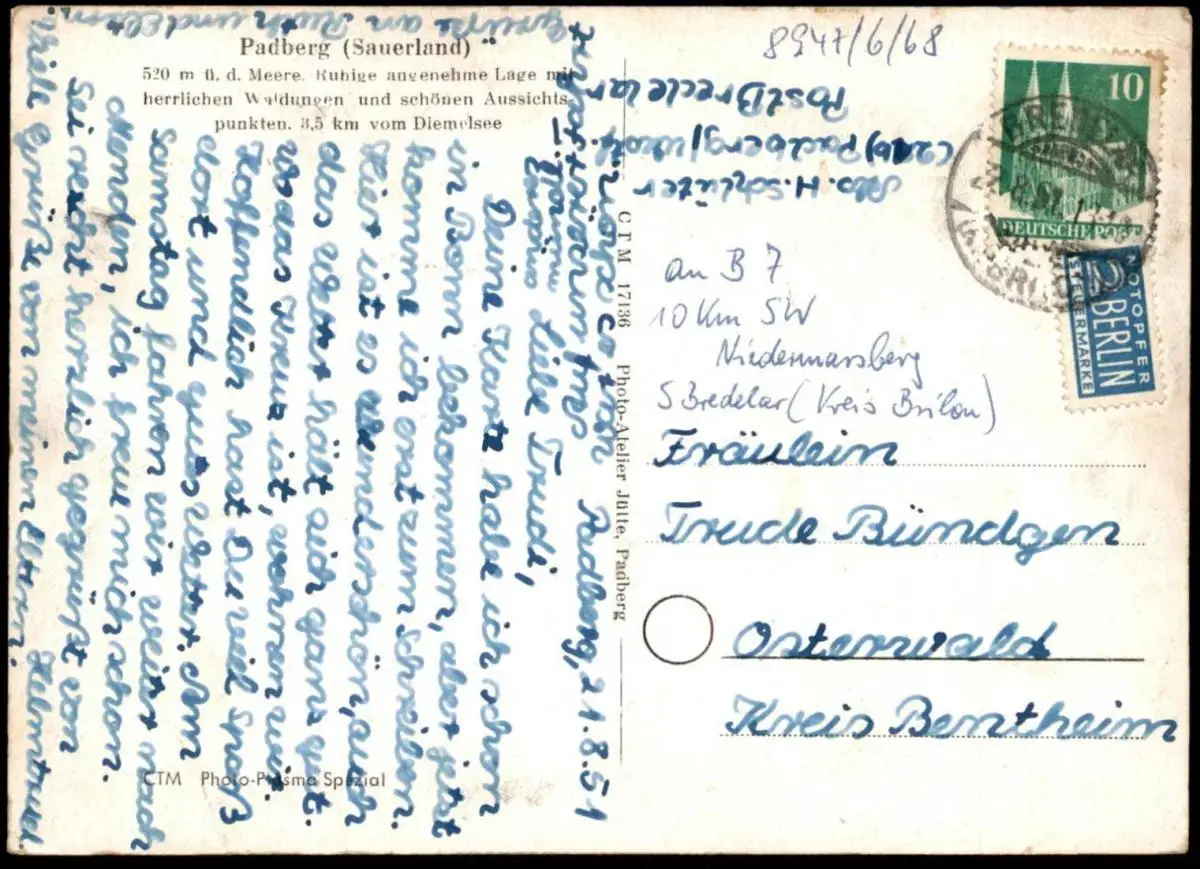 Padberg (Sauerland)
520 m ü. d. Meere. Ruhige angenehme Lage mit
herrlichen Waldungen und schönen Aussichts-
punkten. 3,5 km vom Diemelsee
CTM Photo-Prisma Spezial
CTM 17136 Photo-Atelier Jülte, Padberg
8947/6/68
10
DEUTSCHE POST
NOTOPFER
2 BERLIN
STEUERMARKE
H. Schlüter
Padberg
Post Bredelar
an B 7
10 Km SW
Niedermarsberg
S Bredelar (Kreis Brilon)
Fräulein
Trude Bündgen
Osterwald
Kreis Bentheim
Padberg, 21.8.51
Liebe Trudi,
Deine Karte habe ich schon
in Bonn bekommen, aber jetzt
komme ich erst zum Schreiben.
Hier ist es wunderschön, auch
das Wetter hält sich ganz gut.
Hoffentlich hast Du viel Spaß
dort und gutes Wetter. Am
Samstag fahren wir weiter nach
Menden, ich freu mich schon.
Sei recht herzlich gegrüßt von
Helmtrud.
Viele Grüße von meinen Eltern.
Grüße an Ruth und Eltern